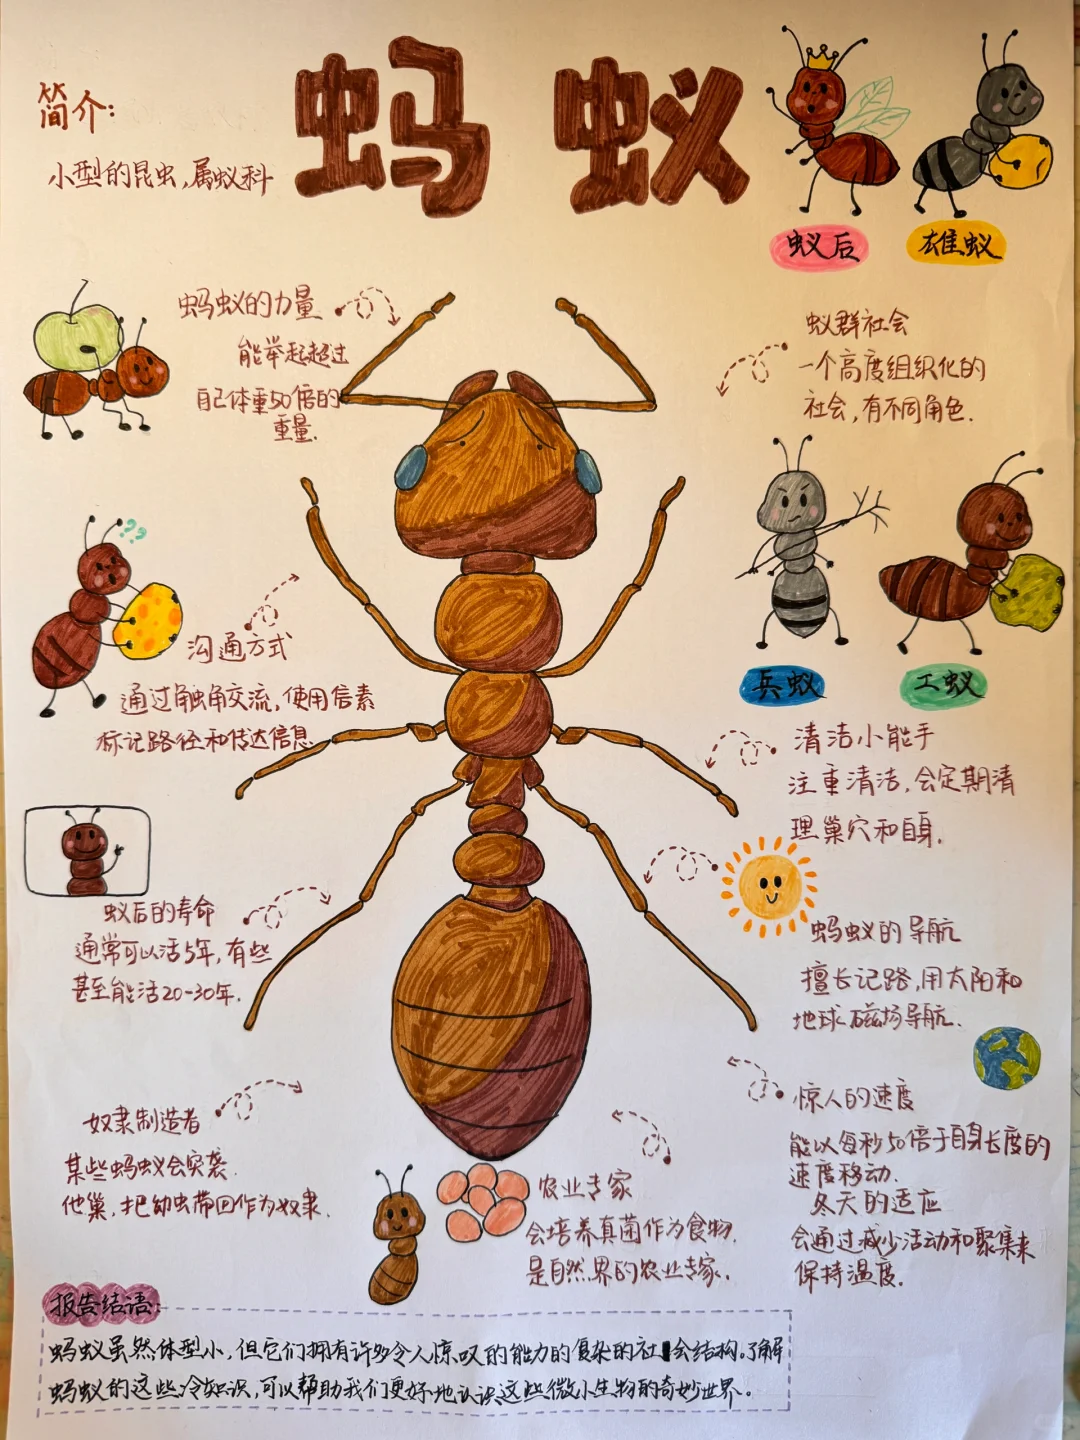 蚂蚁
简介:
小型的昆虫,属蚁科
蚁后
雄蚁
蚂蚁的力量
能举起超过
自己体重50倍的
重量.
蚁群社会
一个高度组织化的
社会,有不同角色.
??
沟通方式
通过触角交流,使用信素
标记路径和传达信息.
兵蚁
工蚁
清洁小能手
注重清洁,会定期清
理巢穴和自身.
蚁后的寿命
通常可以活5年,有些
甚至能活20-30年.
蚂蚁的导航
擅长记路,用太阳和
地球磁场导航.
奴隶制造者
某些蚂蚁会突袭
他巢,把幼虫带回作为奴隶.
惊人的速度
能以每秒50倍于自身长度的
速度移动.
冬天的适应
会通过减少活动和聚集来
保持温度.
农业专家
会培养真菌作为食物.
是自然界的农业专家.
报告结语:
蚂蚁虽然体型小,但它们拥有许多令人惊叹的能力的复杂的社会结构.了解
蚂蚁的这些冷知识,可以帮助我们更好地认识这些微小生物的奇妙世界。